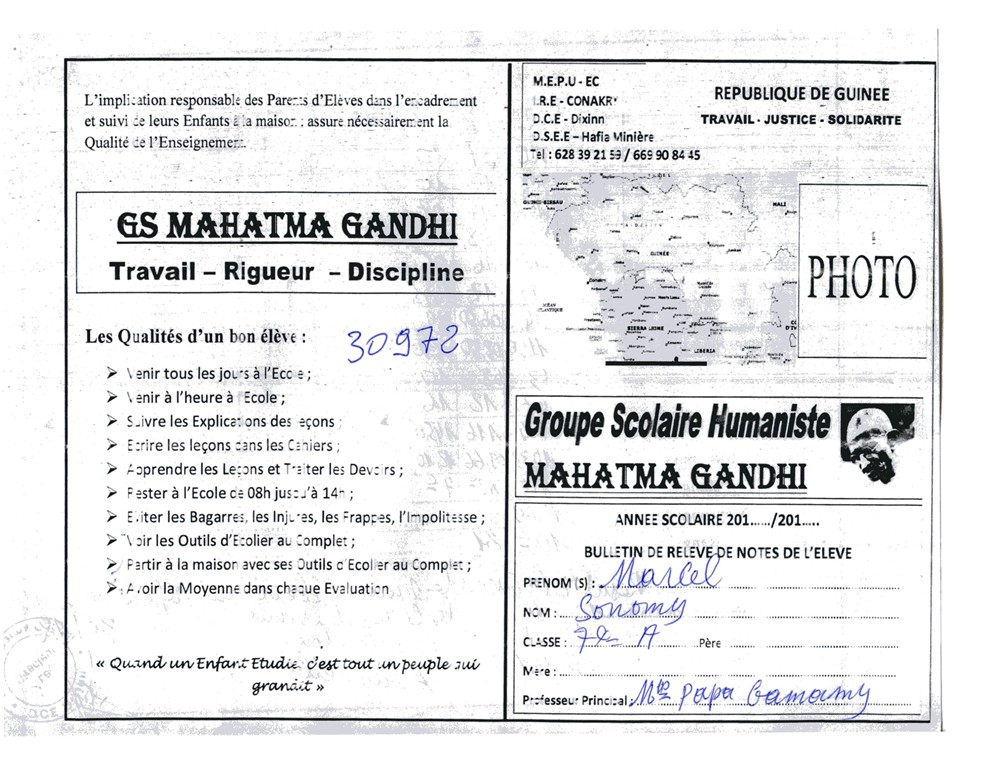 L'implication responsable des Parents d'Elèves dans l'encadrement
et suivi de leurs Enfants à la maison ; assure nécessairement la
Qualité de l'Enseignement.
GS MAHATMA GANDHI
Travail – Rigueur – Discipline
Les Qualités d'un bon élève :
30972
➢ Venir tous les jours à l'Ecole ;
➢ Venir à l'heure à l'Ecole ;
➢ Suivre les Explications des leçons ;
➢ Ecrire les leçons dans les Cahiers ;
➢ Apprendre les Leçons et Traiter les Devoirs ;
➢ Rester à l'Ecole de 08h jusqu'à 14h ;
➢ Eviter les Bagarres, les Injures, les Frappes, l'Impolitesse ;
➢ Avoir les Outils d'Ecolier au Complet ;
➢ Partir à la maison avec ses Outils d'Ecolier au Complet ;
➢ Avoir la Moyenne dans chaque Evaluation
« Quand un Enfant Etudie, c'est tout un peuple qui
grandit »
M.E.P.U - EC
I.R.E - CONAKRY
D.C.E - Dixinn
D.S.E.E – Hafia Minière
Tel : 628 39 21 59 / 669 90 84 45
REPUBLIQUE DE GUINEE
TRAVAIL - JUSTICE - SOLIDARITE
GUINEE-BISSAU
MALI
GUINÉE
OCÉAN
ATLANTIQUE
SIERRA LEONE
LIBERIA
PHOTO
Groupe Scolaire Humaniste
MAHATMA GANDHI
ANNEE SCOLAIRE 201....../201.....
BULLETIN DE RELEVE DE NOTES DE L'ELEVE
PRENOM (S) : Marcel
NOM : Sonomy
CLASSE : 7è A Père
Mère :
Professeur Principal : Mr Papa Gamamy